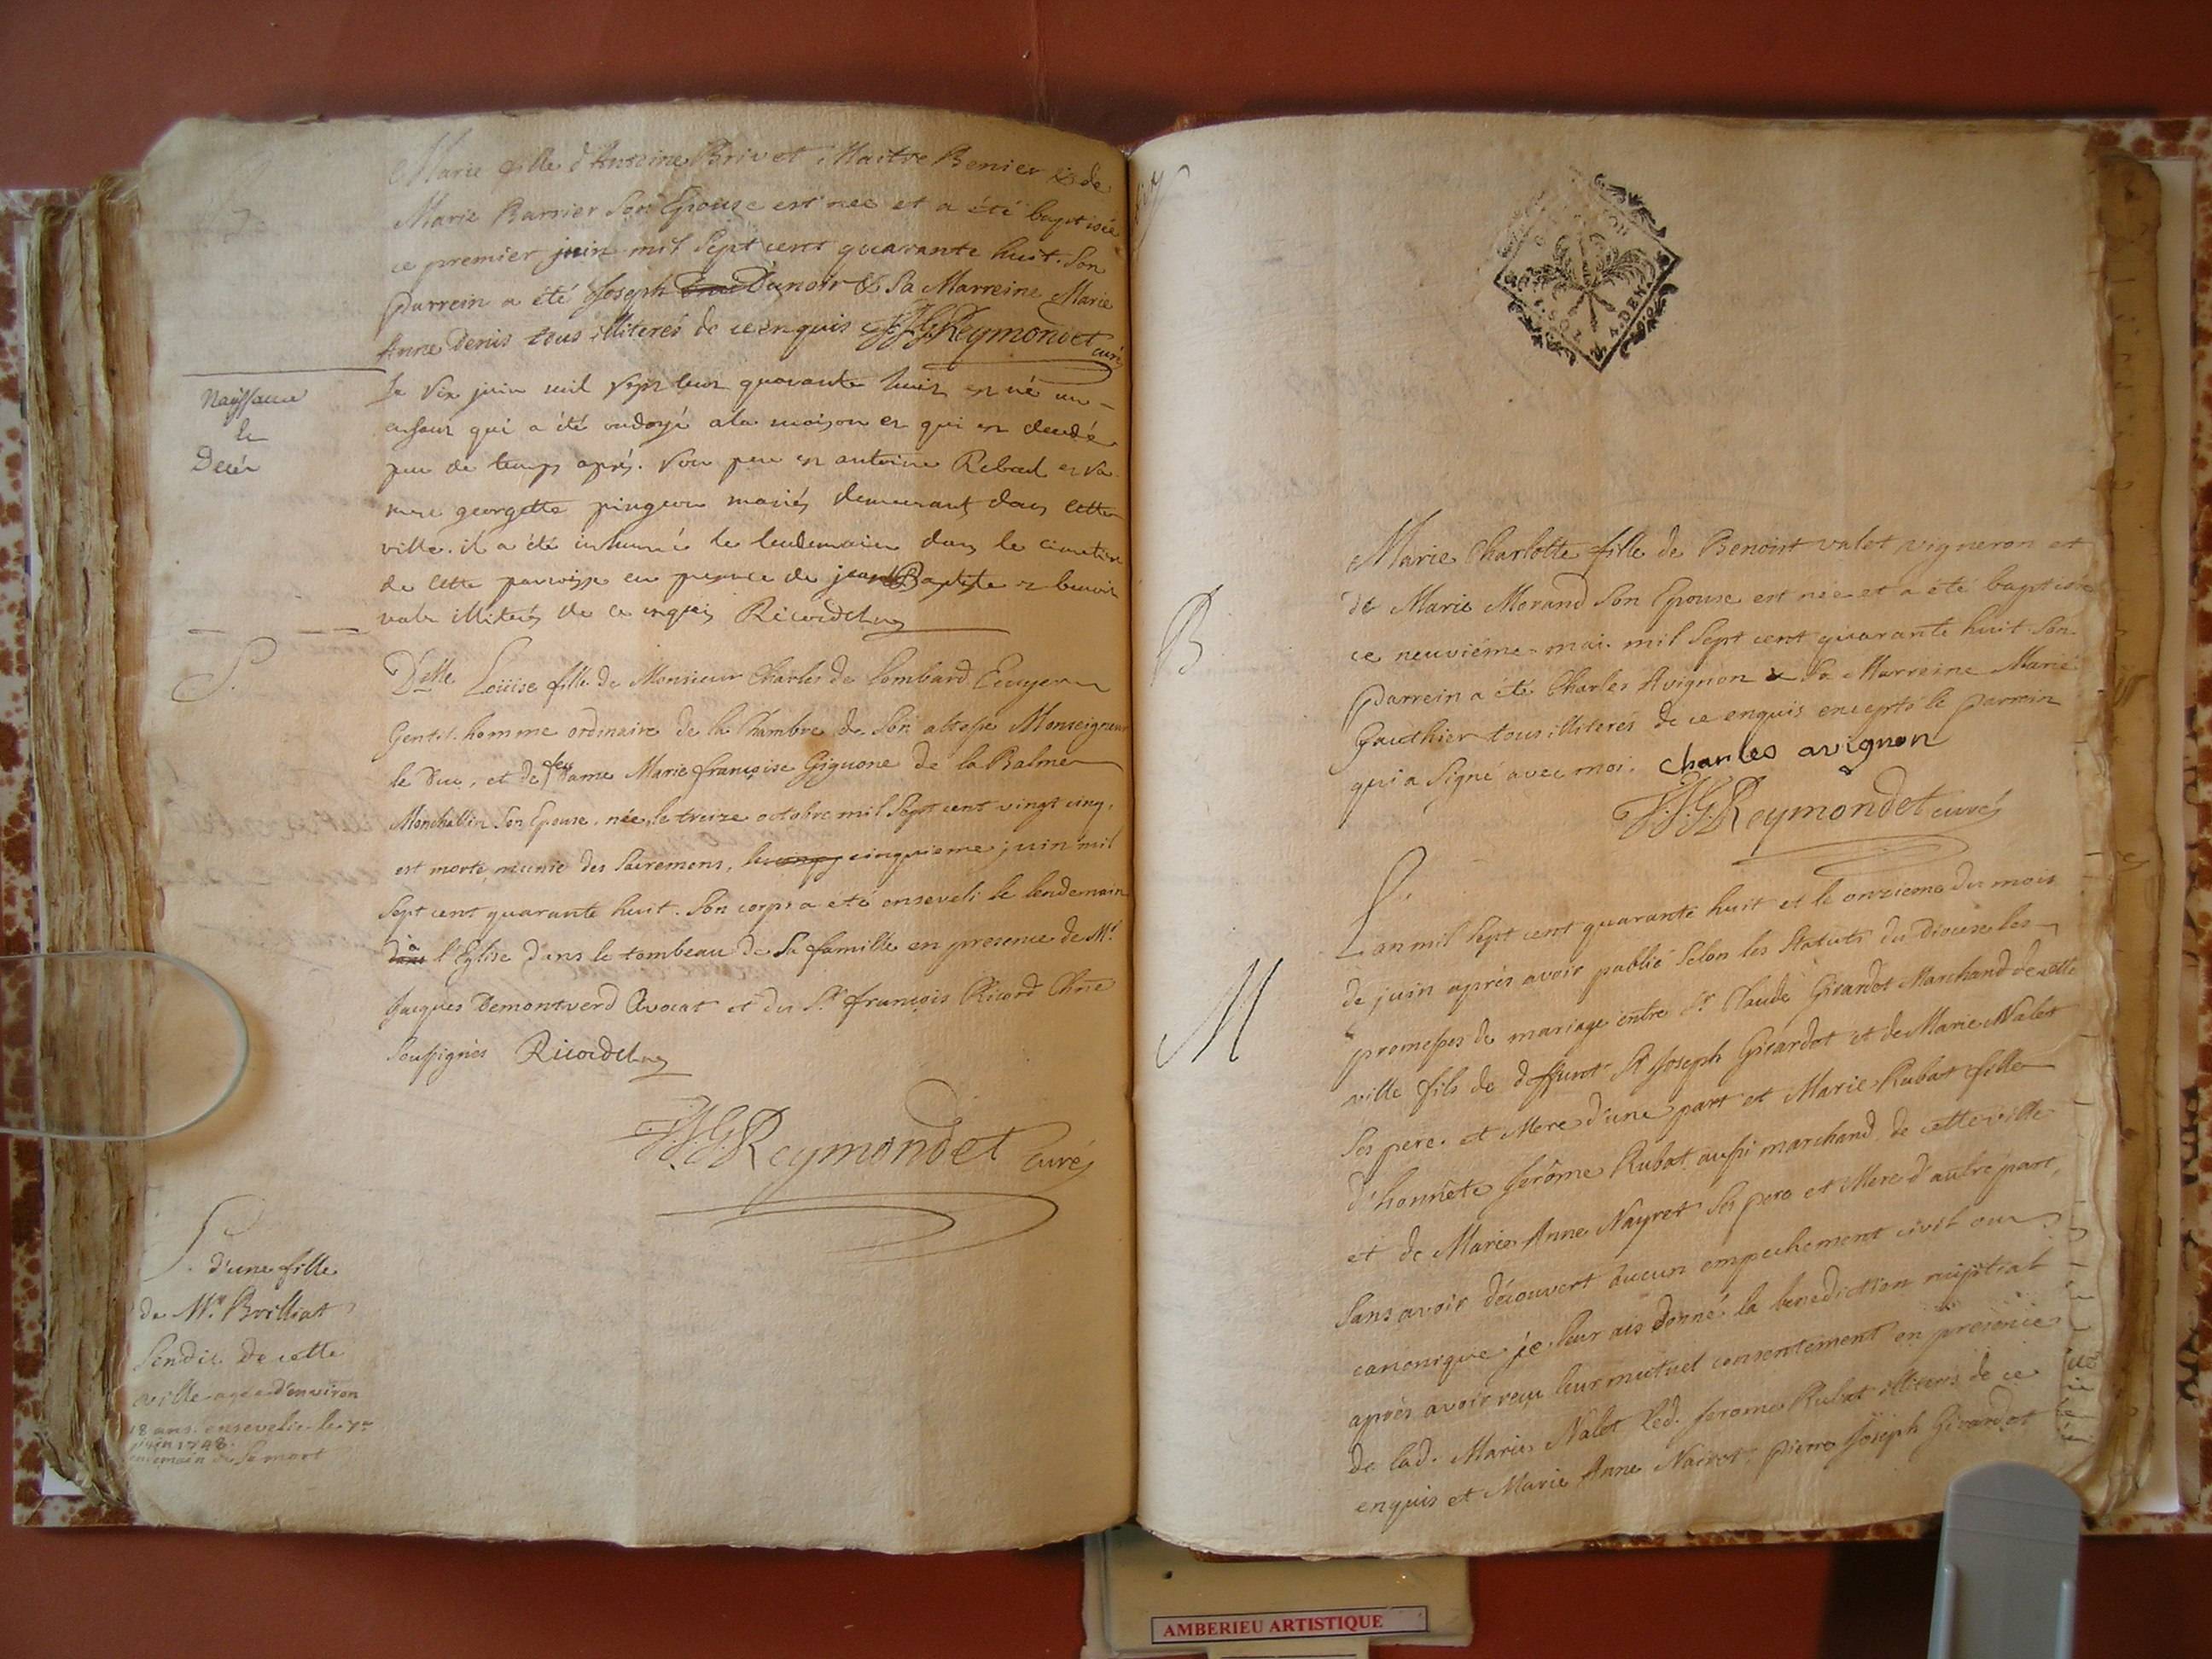 Marie fille d'Antoine Brivet Maitre Benier & de
Marie Barrier Son Epouse est née et a été baptisée
ce premier juin mil Sept cent quarante huit. Son
parrein a été Joseph Dunoir & Sa Marreine Marie
Anne Denis tous illiterés de ce enquis J.J.G. Reymondet curé
Nayssance
et
Decés
Le Six juin mil Sept cent quarante huit est né un
enfant qui a été ondoyé a la maison et qui est decedé
peu de temps aprés. Son pere est antoine Reboul et Sa
mere georgette pingeon mariés demeurant dans cette
ville. il a été inhumé le lendemain dans le cimetiere
de cette paroisse en presence de jean Baptiste et benoit
valet illiterés de ce enquis Ricordet
S.
Dlle Loüise fille de Monsieur Charles de Lombard Ecuyer
Gentilhomme ordinaire de la Chambre de Son altesse Monseigneur
le Duc, et de feu Dame Marie françoise Gignone de la Balme
Monchallin Son Epouse, née le treize octobre mil Sept cent vingt cinq,
est morte munie des Sacremens, le cinquieme juin mil
Sept cent quarante huit. Son corps a été enseveli le lendemain
à l'Eglise dans le tombeau de Sa famille en presence de Mr.
Jacques Demontverd Avocat et du Sr. françois Ricord
Soussignés Ricordet
J.J.G. Reymondet curé
S. d'une fille
de Mr. Brilliat
Sendic de cette
ville agée d'environ
18 ans ensevelie le 7e
juin 1748.
lendemain de Sa mort
B
Marie Charlotte fille de Benoist valet vigneron et
de Marie Morand Son Epouse est née et a été baptisée
ce neuviéme mai mil Sept cent quarante huit. Son
parrein a été Charles Avignon & Sa Marreine Marie
Gauthier tous illiterés de ce enquis excepté le parrein
qui a Signé avec moi. charles avignon
J.J.G. Reymondet curé
M
L'an mil Sept cent quarante huit et le onzieme du mois
de juin aprés avoir publié Selon les Statuts du Diocese les
promesses de mariage entre Sr. Claude Girardot Marchand de cette
ville fils de deffunt Sr. Joseph Girardot et de Marie Nalet
Ses pere et Mere d'une part et Marie Rubat fille
d'honnête Jerôme Rubat aussi marchand de cette ville
et de Marie Anne Nayret Ses pere et Mere d'autre part,
Sans avoir découvert aucun empechement civil ou
canonique je leur ais donné la benediction nuptial
aprés avoir reçu leur mutuel consentement en presence
de lad. Marie Nalet led. Jerome Rubat illiterés de ce
enquis et Marie Anne Nairet pierre Joseph Girardot
AMBERIEU ARTISTIQUE